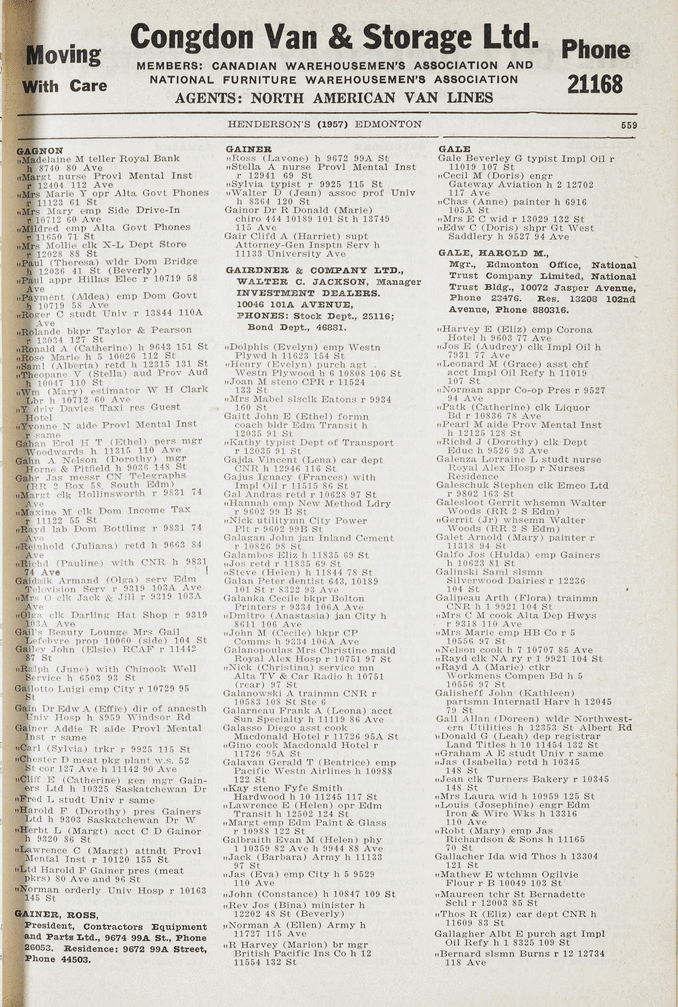 Moving
With Care
Congdon Van & Storage Ltd.
MEMBERS: CANADIAN WAREHOUSEMEN'S ASSOCIATION AND
NATIONAL FURNITURE WAREHOUSEMEN'S ASSOCIATION
AGENTS: NORTH AMERICAN VAN LINES
Phone
21168
HENDERSON'S (1957) EDMONTON
559
GAGNON
"Madelaine M teller Royal Bank
h 8740 80 Ave
"Margt nurse Provl Mental Inst
r 12404 112 Ave
"Mrs Marie Y opr Alta Govt Phones
r 11123 61 St
"Mrs Mary emp Side Drive-In
r 10712 60 Ave
"Mildred emp Alta Govt Phones
r 11650 71 St
"Mrs Mollie clk X-L Dept Store
r 12028 88 St
"Paul (Theresa) wldr Dom Bridge
h 12036 41 St (Beverly)
"Paul appr Hillas Elec r 10719 58
Ave
"Payment (Aldea) emp Dom Govt
h 10719 58 Ave
"Roger C studt Univ r 13844 110A
Ave
"Rolande bkpr Taylor & Pearson
r 13034 127 St
"Ronald A (Catherine) h 9643 151 St
"Rose Marie h 5 10026 112 St
"Saml (Alberta) retd h 12315 131 St
"Theopane V (Stella) aud Prov Aud
h 10047 110 St
"Wm (Mary) estimator W H Clark
Lbr h 10712 60 Ave
"Y driv Davies Taxi res Guest
Hotel
"Yvonne N aide Provl Mental Inst
r same
Gahan Erol H T (Ethel) pers mgr
Woodwards h 11315 110 Ave
Gahn A Nelson (Dorothy) mgr
Horne & Pitfield h 9036 148 St
Gahr Jas messr CN Telegraphs
(RR 2 Box 58, South Edm)
"Margt clk Hollinsworth r 9831 74
Ave
"Maxine M clk Dom Income Tax
r 11122 55 St
"Rayd lab Dom Bottling r 9831 74
Ave
"Reinhold (Juliana) retd h 9663 84
Ave
"Richd (Pauline) with CNR h 9831
74 Ave
Gaidalk Armand (Olga) serv Edm
Television Serv r 9319 103A Ave
"Mrs O clk Jack & Jill r 9319 103A
Ave
"Olga clk Darling Hat Shop r 9319
103A Ave
Gail's Beauty Lounge Mrs Gail
Lefebvre prop 10060 (side) 104 St
Gailey John (Elsie) RCAF r 11442
87 St
"Ralph (June) with Chinook Well
Service h 6503 93 St
Gailotto Luigi emp City r 10729 95
St
Gain Dr Edw A (Effie) dir of anaesth
Univ Hosp h 8959 Windsor Rd
Gainer Addie R aide Provl Mental
Inst r same
"Carl (Sylvia) trkr r 9925 115 St
"Chester D meat pkg plant w.s. 52
St cor 127 Ave h 11142 90 Ave
"Cliff E (Catherine) gen mgr Gain-
ers Ltd h 10325 Saskatchewan Dr
"Fred L studt Univ r same
"Harold F (Dorothy) pres Gainers
Ltd h 9303 Saskatchewan Dr W
"Herbt L (Margt) acct C D Gainor
h 9320 86 St
"Lawrence C (Margt) attndt Provl
Mental Inst r 10120 155 St
"Ltd Harold F Gainer pres (meat
pkrs) 80 Ave and 96 St
"Norman orderly Univ Hosp r 10163
145 St
GAINER, ROSS,
President, Contractors Equipment
and Parts Ltd., 9674 99A St., Phone
26053. Residence: 9672 99A Street,
Phone 44503.
GAINER
"Ross (Lavone) h 9672 99A St
"Stella A nurse Provl Mental Inst
r 12941 69 St
"Sylvia typist r 9925 115 St
"Walter D (Jean) assoc prof Univ
h 8364 120 St
Gainor Dr R Donald (Marie)
chiro 444 10189 101 St h 13749
115 Ave
Gair Clifd A (Harriet) supt
Attorney-Gen Insptn Serv h
11133 University Ave
GAIRDNER & COMPANY LTD.,
WALTER C. JACKSON, Manager
INVESTMENT DEALERS.
10046 101A AVENUE,
PHONES: Stock Dept., 25116;
Bond Dept., 46881.
"Dolphis (Evelyn) emp Westn
Plywd h 11623 154 St
"Henry (Evelyn) purch agt
Westn Plywood h 6 10808 106 St
"Joan M steno CPR r 11524
133 St
"Mrs Mabel slsclk Eatons r 9934
160 St
Gaitt John E (Ethel) formn
coach bldr Edm Transit h
12035 91 St
"Kathy typist Dept of Transport
r 12035 91 St
Gajda Vincent (Lena) car dept
CNR h 12946 116 St
Gajus Ignacy (Frances) with
Impl Oil r 11515 86 St
Gal Andras retd r 10628 97 St
"Hannah emp New Method Ldry
r 9602 99 B St
"Nick utilitymn City Power
Plt r 9602 99B St
Galagan John jan Inland Cement
r 10826 98 St
Galambos Eliz h 11835 69 St
"Jos retd r 11835 69 St
"Steve (Helen) h 11844 78 St
Galan Peter dentist 643, 10189
101 St r 8322 93 Ave
Galanka Cecile bkpr Bolton
Printers r 9334 106A Ave
"Dmitro (Anastasia) jan City h
8611 106 Ave
"John M (Cecile) bkpr CP
Comms h 9334 106A Ave
Galanopoulas Mrs Christine maid
Royal Alex Hosp r 10751 97 St
"Nick (Christina) service mn
Alta TV & Car Radio h 10751
(rear) 97 St
Galanowski A trainmn CNR r
10583 108 St Ste 6
Galarneau Frank A (Leona) acct
Sun Specialty h 11119 86 Ave
Galasso Diego asst cook
Macdonald Hotel r 11726 95A St
"Gino cook Macdonald Hotel r
11726 95A St
Galavan Gerald T (Beatrice) emp
Pacific Westn Airlines h 10988
122 St
"Kay steno Fyfe Smith
Hardwood h 10 11245 117 St
"Lawrence E (Helen) opr Edm
Transit h 12502 124 St
"Margt emp Edm Paint & Glass
r 10988 122 St
Galbraith Evan M (Helen) phy
1 10359 82 Ave h 9944 88 Ave
"Jack (Barbara) Army h 11133
97 St
"Jas (Eva) emp City h 5 9529
110 Ave
"John (Constance) h 10847 109 St
"Rev Jos (Bina) minister h
12202 48 St (Beverly)
"Norman A (Ellen) Army h
11727 115 Ave
"R Harvey (Marion) br mgr
British Pacific Ins Co h 12
11554 132 St
GALE
Gale Beverley G typist Impl Oil r
11019 107 St
"Cecil M (Doris) engr
Gateway Aviation h 2 12702
117 Ave
"Chas (Anne) painter h 6916
105A St
"Mrs E C wid r 13029 132 St
"Edw C (Doris) shpr Gt West
Saddlery h 9527 94 Ave
GALE, HAROLD M.,
Mgr., Edmonton Office, National
Trust Company Limited, National
Trust Bldg., 10072 Jasper Avenue,
Phone 23476. Res. 13208 102nd
Avenue, Phone 880316.
"Harvey E (Eliz) emp Corona
Hotel h 9603 77 Ave
"Jos E (Audrey) clk Impl Oil h
7931 77 Ave
"Leonard M (Grace) asst chf
acct Impl Oil Refy h 11019
107 St
"Norman appr Co-op Pres r 9527
94 Ave
"Patk (Catherine) clk Liquor
Bd r 10836 78 Ave
"Pearl M aide Prov Mental Inst
h 12125 128 St
"Richd J (Dorothy) clk Dept
Educ h 9526 93 Ave
Galenza Lorraine L studt nurse
Royal Alex Hosp r Nurses
Residence
Galeschuk Stephen clk Emco Ltd
r 9802 163 St
Galesloot Gerrit whsemn Walter
Woods (RR 2 S Edm)
"Gerrit (Jr) whsemn Walter
Woods (RR 2 S Edm)
Galet Arnold (Mary) painter r
11318 94 St
Galfo Jos (Hulda) emp Gainers
h 10623 81 St
Galinski Saml slsmn
Silverwood Dairies r 12236
104 St
Galipeau Arth (Flora) trainmn
CNR h 1 9921 104 St
"Mrs C M cook Alta Dep Hwys
r 9318 110 Ave
"Mrs Marie emp HB Co r 5
10556 97 St
"Nelson cook h 7 10707 85 Ave
"Rayd clk NA ry r 1 9921 104 St
"Rayd A (Marie) ctkr
Workmens Compen Bd h 5
10556 97 St
Galisheff John (Kathleen)
partsmn Internatl Harv h 12045
79 St
Gall Allan (Doreen) wldr Northwest-
ern Utilities h 12353 St Albert Rd
"Donald G (Leah) dep registrar
Land Titles h 10 11454 132 St
"Graham A E studt Univ r same
"Jas (Isabella) retd h 10345
148 St
"Jean clk Turners Bakery r 10345
148 St
"Mrs Laura wid h 10959 125 St
"Louis (Josephine) engr Edm
Iron & Wire Wks h 13316
110 Ave
"Robt (Mary) emp Jas
Richardson & Sons h 11165
70 St
Gallacher Ida wid Thos h 13304
121 St
"Mathew E wtchmn Ogilvie
Flour r B 10049 103 St
"Maureen tchr St Bernadette
Schl r 12003 85 St
"Thos R (Eliz) car dept CNR h
11609 83 St
Gallagher Albt E purch agt Impl
Oil Refy h 1 8325 109 St
"Bernard slsmn Burns r 12 12734
118 Ave